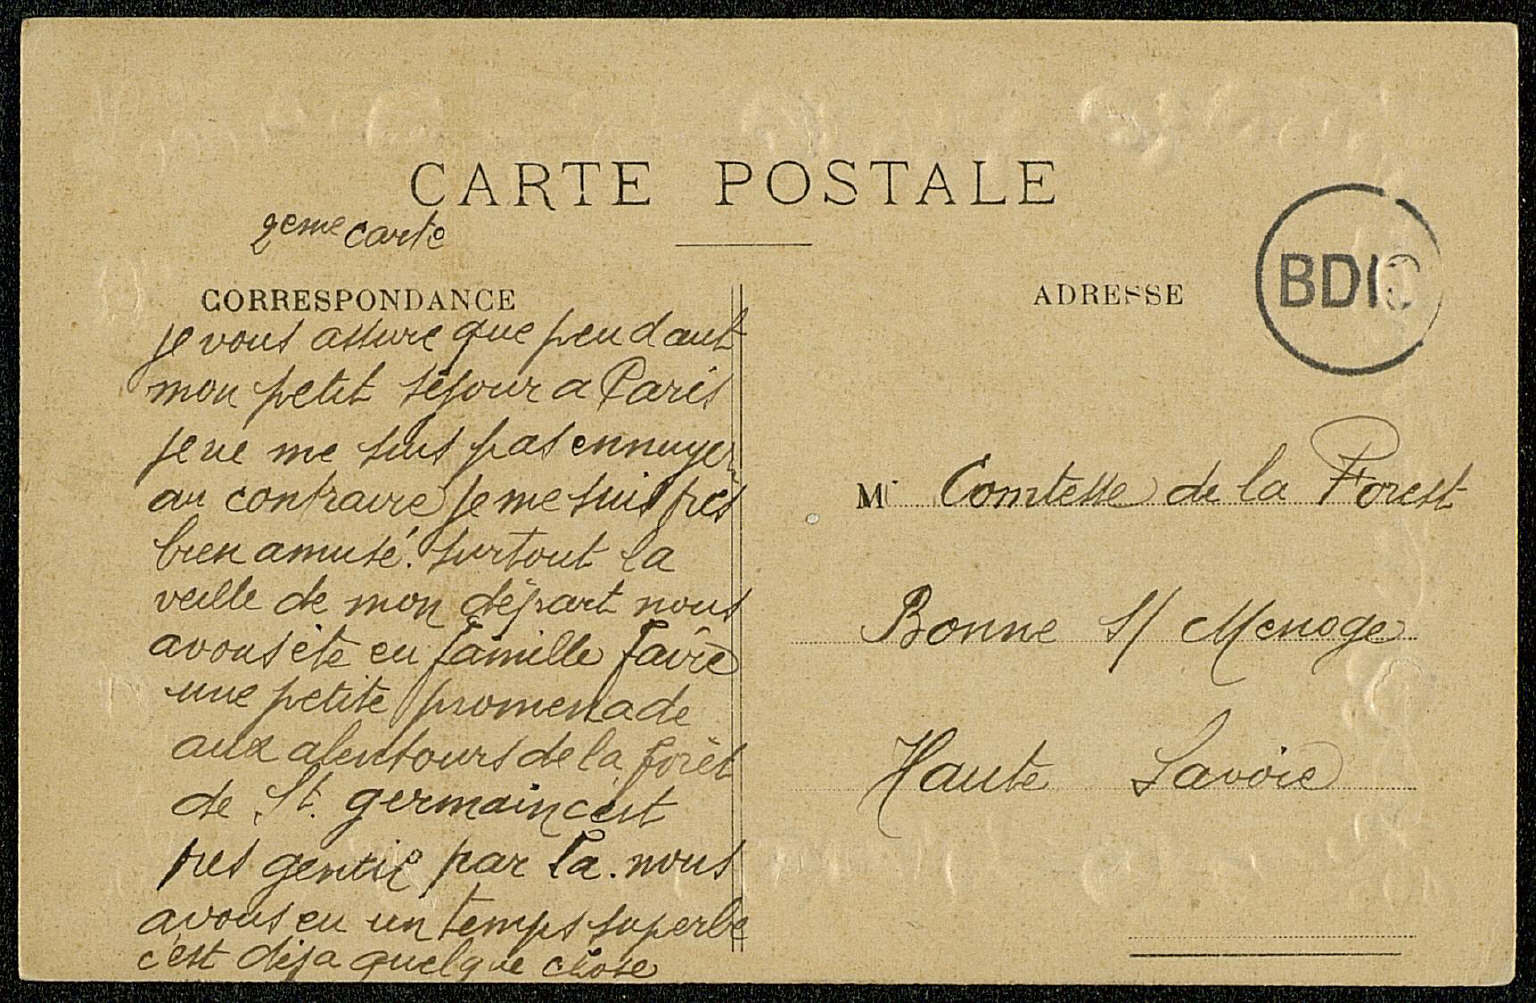 CARTE POSTALE
2eme carte
CORRESPONDANCE
je vous assure que pendant
mon petit séjour a Paris
je ne me suis pas ennuyer
au contraire je me suis tres
bien amusé. surtout la
veille de mon départ nous
avons été en famille faire
une petite promenade
aux alentours de la forêt
de St. germain c'est
tres gentil par la. nous
avons eu un temps superbe
c'est déja quelque chose
ADRESSE
BDIC
M Comtesse de la Forest
Bonne s/ Menoge
Haute Savoie